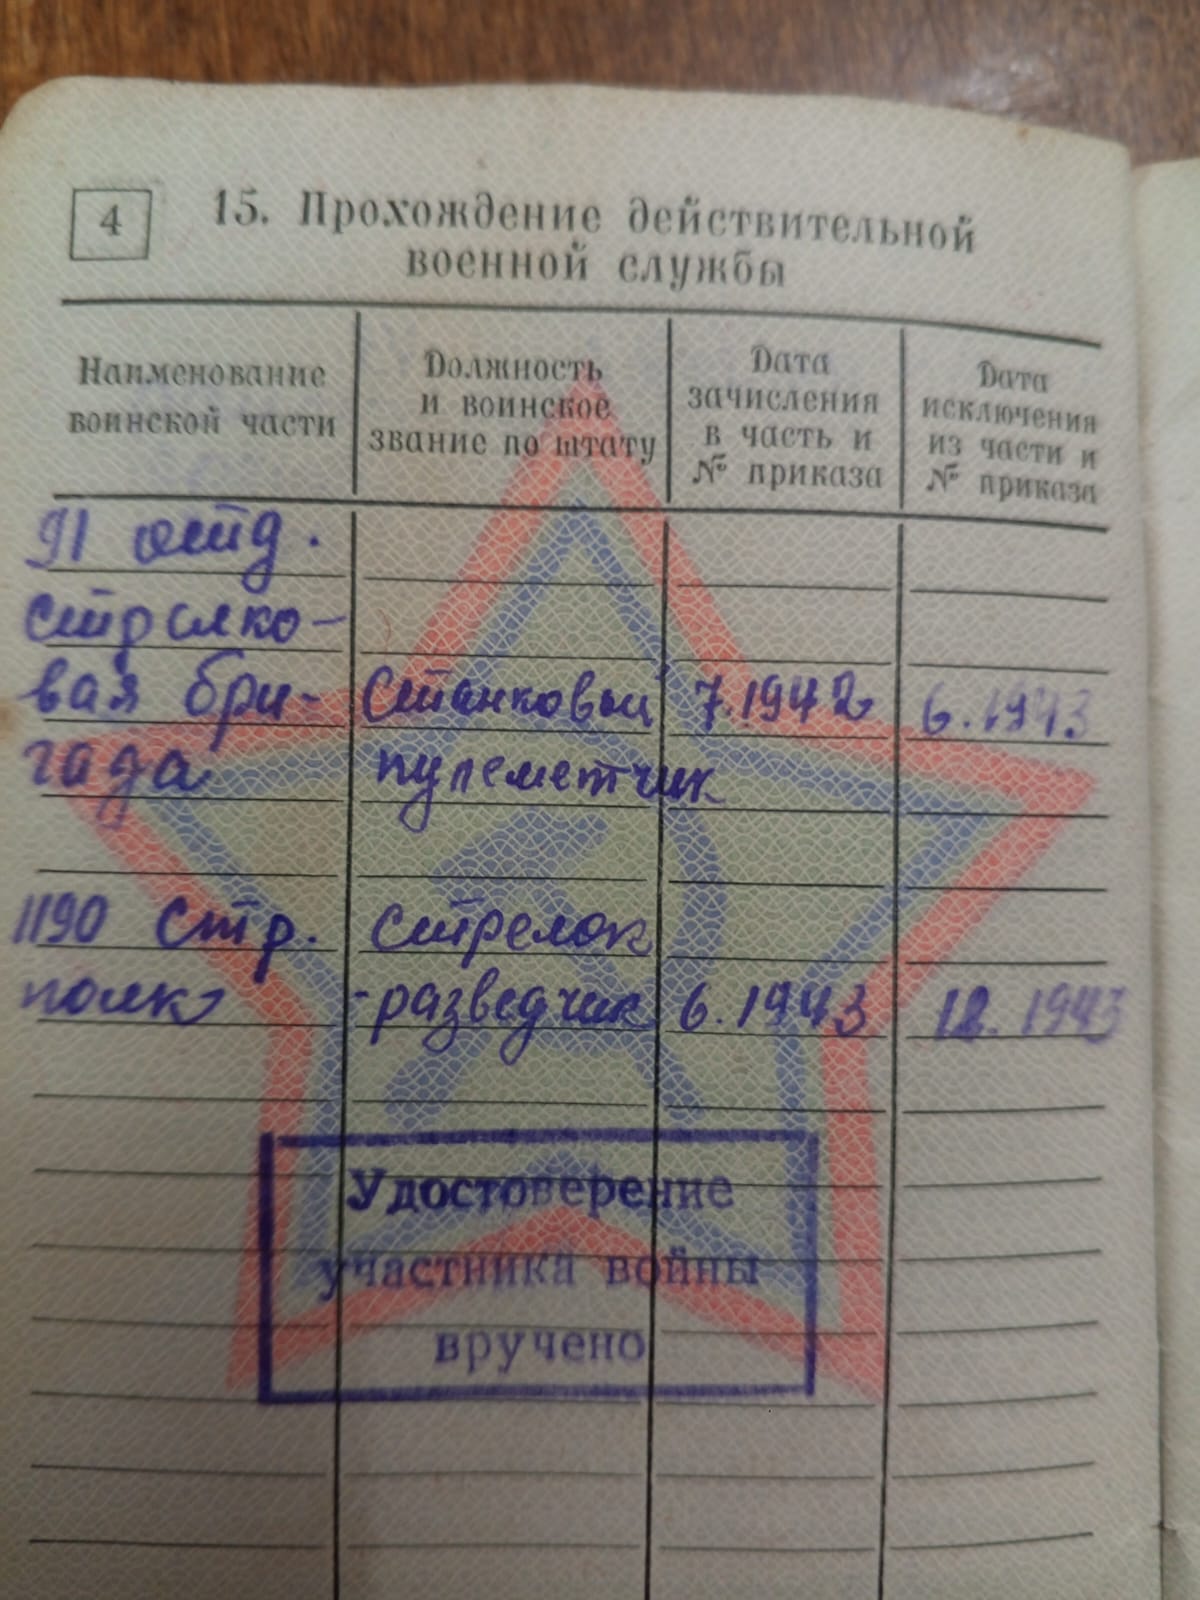 4
15. Прохождение действительной
военной службы
Наименование
воинской части
Должность
и воинское
звание по штату
Дата
зачисления
в часть и
№ приказа
Дата
исключения
из части и
№ приказа
91 отд.
стрелко-
вая бри- Станковый 7.1942 6.1943
гада пулеметчик
1190 стр. стрелок
полк -разведчик 6.1943 12.1943
Удостоверение
участника войны
вручено